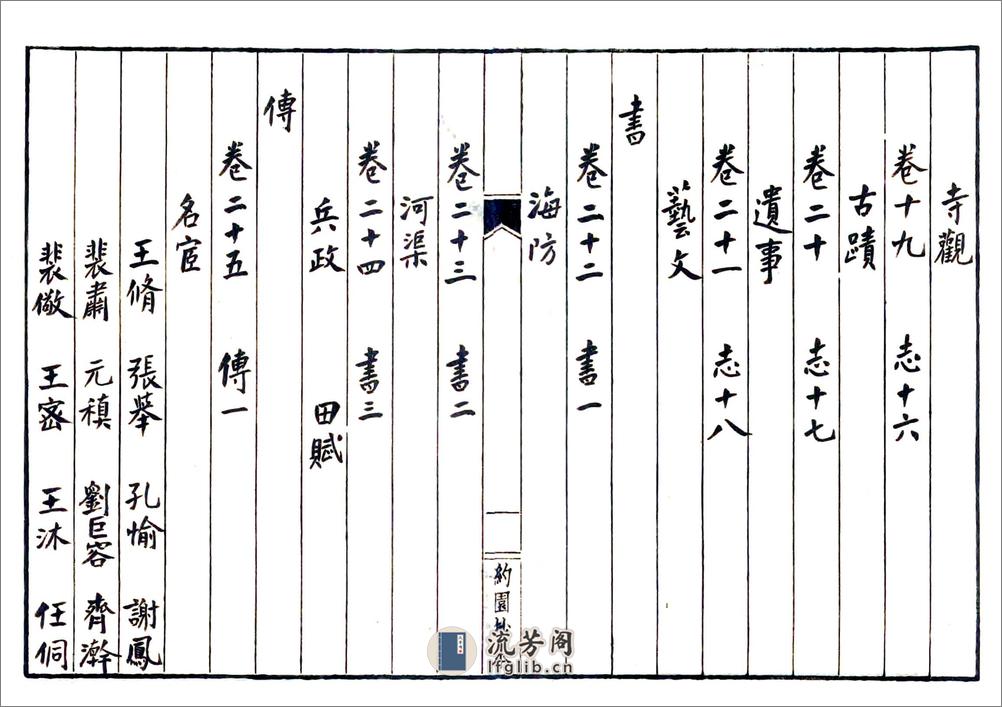 寺觀
卷十九 志十六
古蹟
卷二十 志十七
遺事
卷二十一 志十八
藝文
書
卷二十二 書一
海防
約園
流芳阁
lfglib.cn
卷二十三 書二
河渠
卷二十四 書三
兵政 田賦
傳
卷二十五 傳一
名宦
王脩 張舉 孔愉 謝鳳
裴肅 元稹 劉巨容 齊澣
裴儆 王密 王沐 任侗